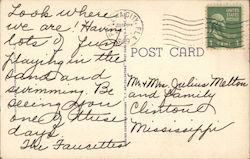 Look where
we are. Having
lots of fun
playing in the
sand and
swimming. Be
seeing you
one of these
days.
The Faucettes
POST CARD
Mr & Mrs. Julius Melton
and Family
Clinton
Mississippi